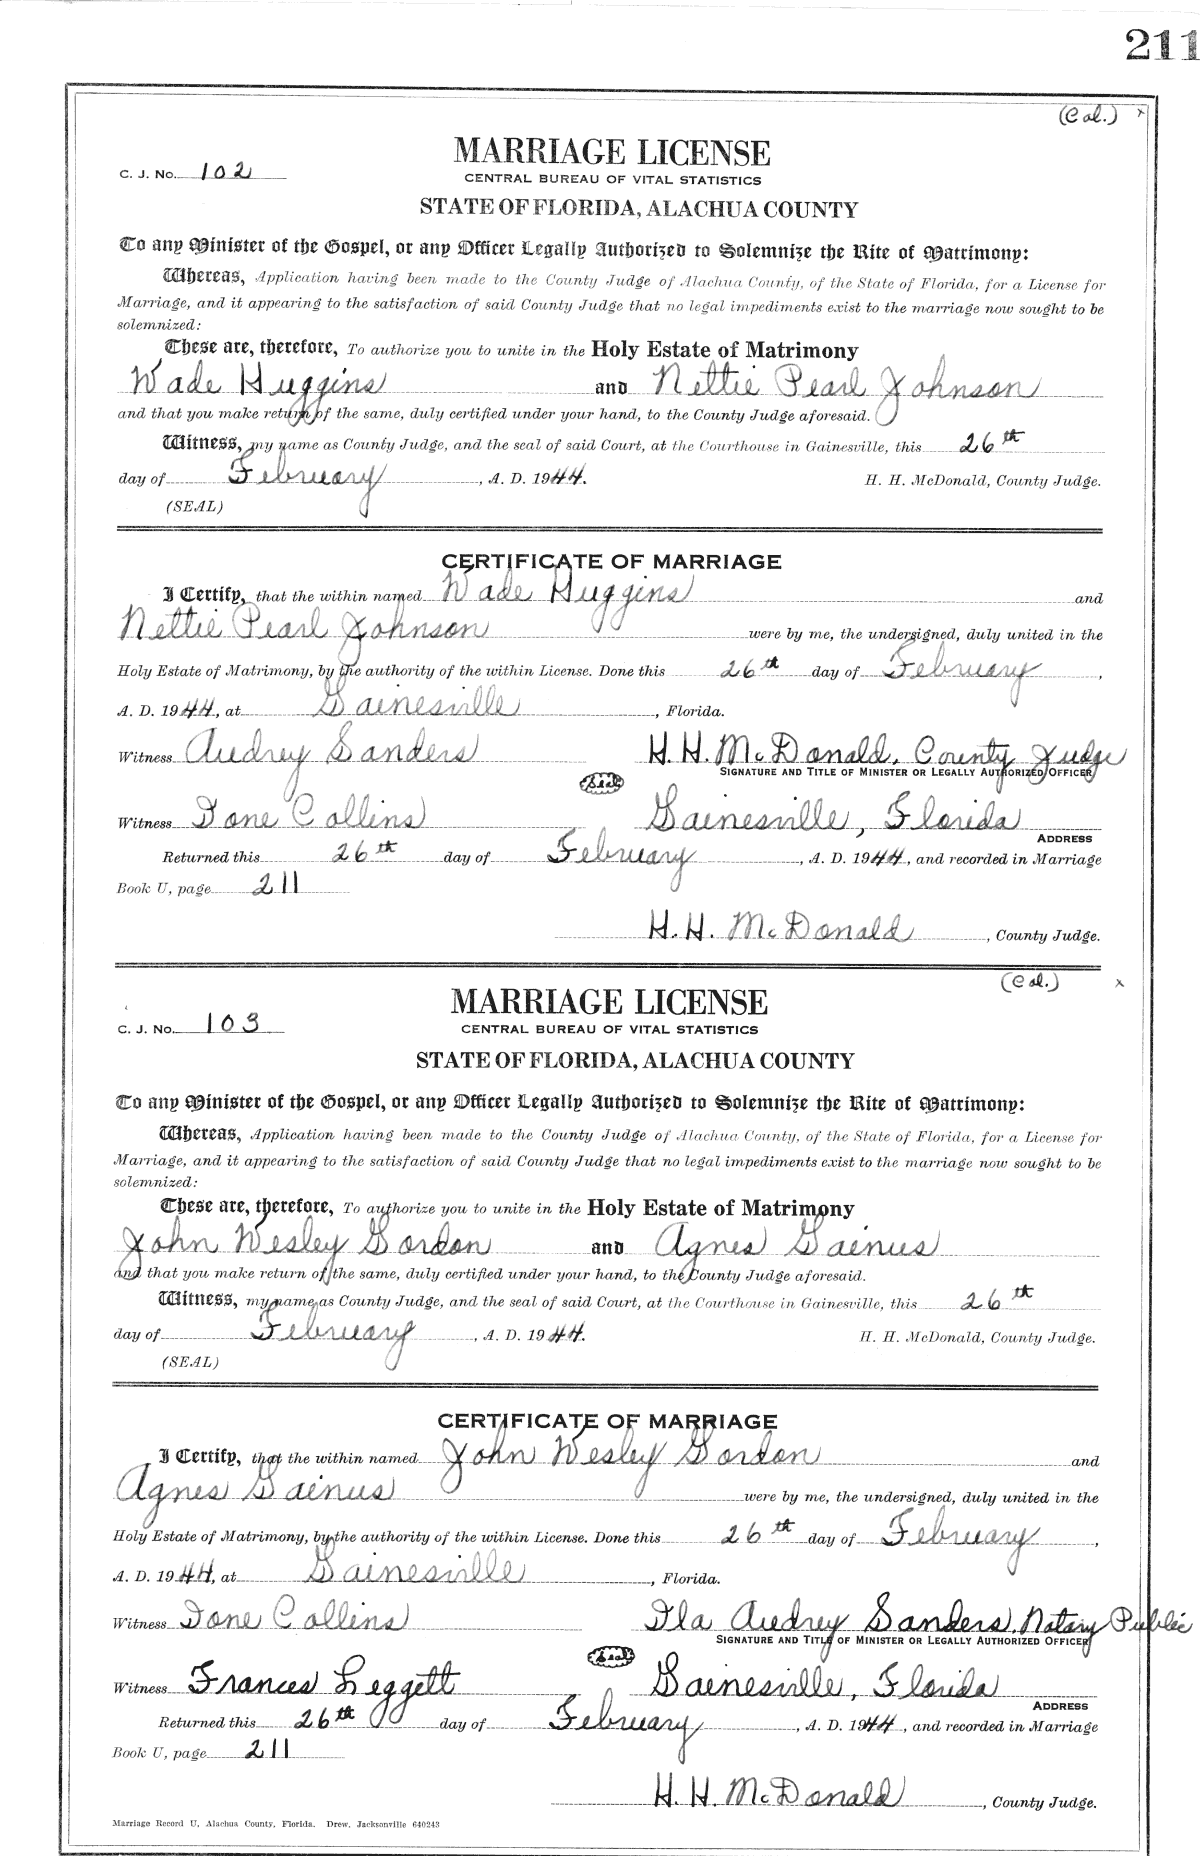 211
(Col.) x
MARRIAGE LICENSE
C. J. No. 102
CENTRAL BUREAU OF VITAL STATISTICS
STATE OF FLORIDA, ALACHUA COUNTY
To any Minister of the Gospel, or any Officer Legally Authorized to Solemnize the Rite of Matrimony:
Whereas, Application having been made to the County Judge of Alachua County, of the State of Florida, for a License for
Marriage, and it appearing to the satisfaction of said County Judge that no legal impediments exist to the marriage now sought to be
solemnized:
These are, therefore, To authorize you to unite in the Holy Estate of Matrimony
Wade Huggins and Nettie Pearl Johnson
and that you make return of the same, duly certified under your hand, to the County Judge aforesaid.
Witness, my name as County Judge, and the seal of said Court, at the Courthouse in Gainesville, this 26th
day of February, A. D. 1944. H. H. McDonald, County Judge.
(SEAL)
CERTIFICATE OF MARRIAGE
I Certify, that the within named Wade Huggins and
Nettie Pearl Johnson were by me, the undersigned, duly united in the
Holy Estate of Matrimony, by the authority of the within License. Done this 26th day of February,
A. D. 1944, at Gainesville, Florida.
Witness Audrey Sanders H. H. McDonald, County Judge
SIGNATURE AND TITLE OF MINISTER OR LEGALLY AUTHORIZED OFFICER
Seal
Witness Ione Collins Gainesville, Florida
ADDRESS
Returned this 26th day of February, A. D. 1944, and recorded in Marriage
Book U, page 211
H. H. McDonald, County Judge.
(Col.) x
MARRIAGE LICENSE
C. J. No. 103
CENTRAL BUREAU OF VITAL STATISTICS
STATE OF FLORIDA, ALACHUA COUNTY
To any Minister of the Gospel, or any Officer Legally Authorized to Solemnize the Rite of Matrimony:
Whereas, Application having been made to the County Judge of Alachua County, of the State of Florida, for a License for
Marriage, and it appearing to the satisfaction of said County Judge that no legal impediments exist to the marriage now sought to be
solemnized:
These are, therefore, To authorize you to unite in the Holy Estate of Matrimony
John Wesley Gordon and Agnes Gainus
and that you make return of the same, duly certified under your hand, to the County Judge aforesaid.
Witness, my name as County Judge, and the seal of said Court, at the Courthouse in Gainesville, this 26th
day of February, A. D. 1944. H. H. McDonald, County Judge.
(SEAL)
CERTIFICATE OF MARRIAGE
I Certify, that the within named John Wesley Gordon and
Agnes Gainus were by me, the undersigned, duly united in the
Holy Estate of Matrimony, by the authority of the within License. Done this 26th day of February,
A. D. 1944, at Gainesville, Florida.
Witness Ione Collins Ila Audrey Sanders, Notary Public
SIGNATURE AND TITLE OF MINISTER OR LEGALLY AUTHORIZED OFFICER
Seal
Witness Frances Leggett Gainesville, Florida
ADDRESS
Returned this 26th day of February, A. D. 1944, and recorded in Marriage
Book U, page 211
H. H. McDonald, County Judge.
Marriage Record U, Alachua County, Florida. Drew, Jacksonville 640243